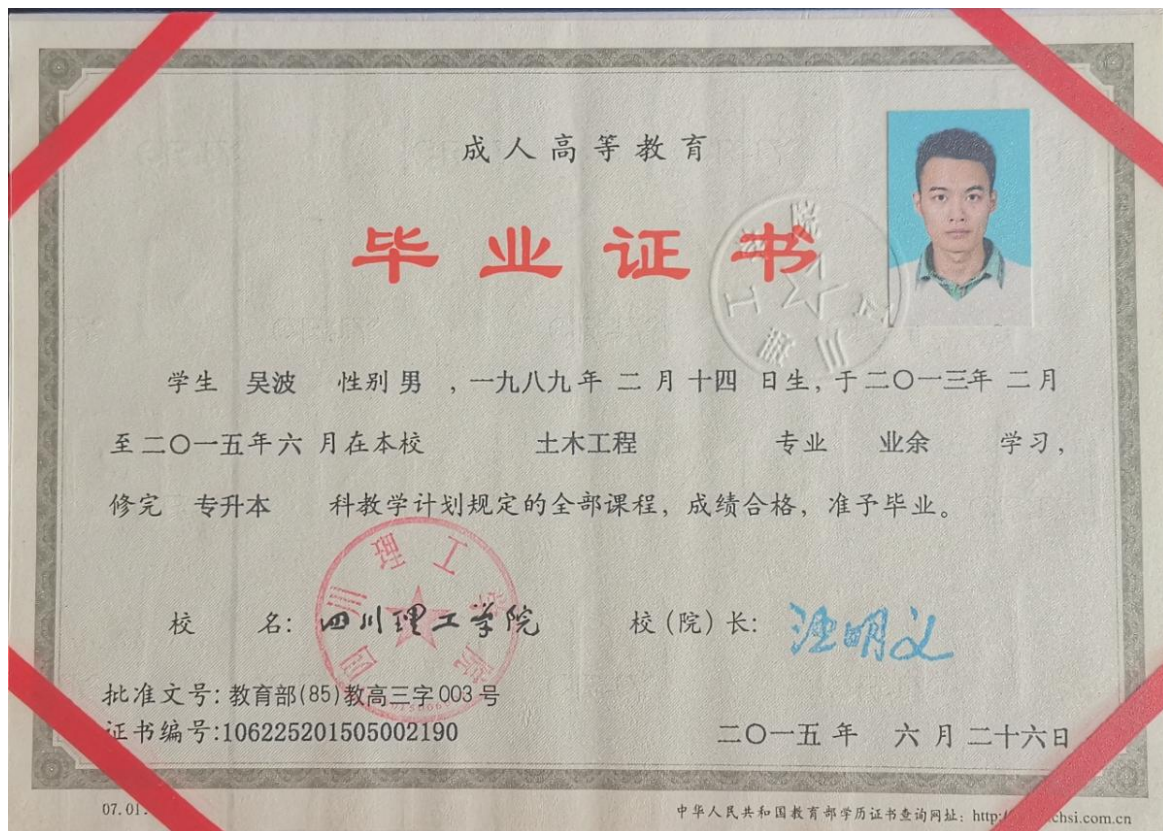 成人高等教育
毕业证书
学生 吴波 性别 男 ，一九八九年 二 月 十四 日生，于二〇一三年 二月
至二〇一五年六 月在本校 土木工程 专业 业余 学习，
修完 专升本 科教学计划规定的全部课程，成绩合格，准予毕业。
校 名： 四川理工学院 校（院）长：
四川理工学院
批准文号：教育部(85)教高三字003号
证书编号:106225201505002190
二〇一五年 六 月 二十六日
07.01.
中华人民共和国教育部学历证书查询网址：http:/ chsi.com.cn